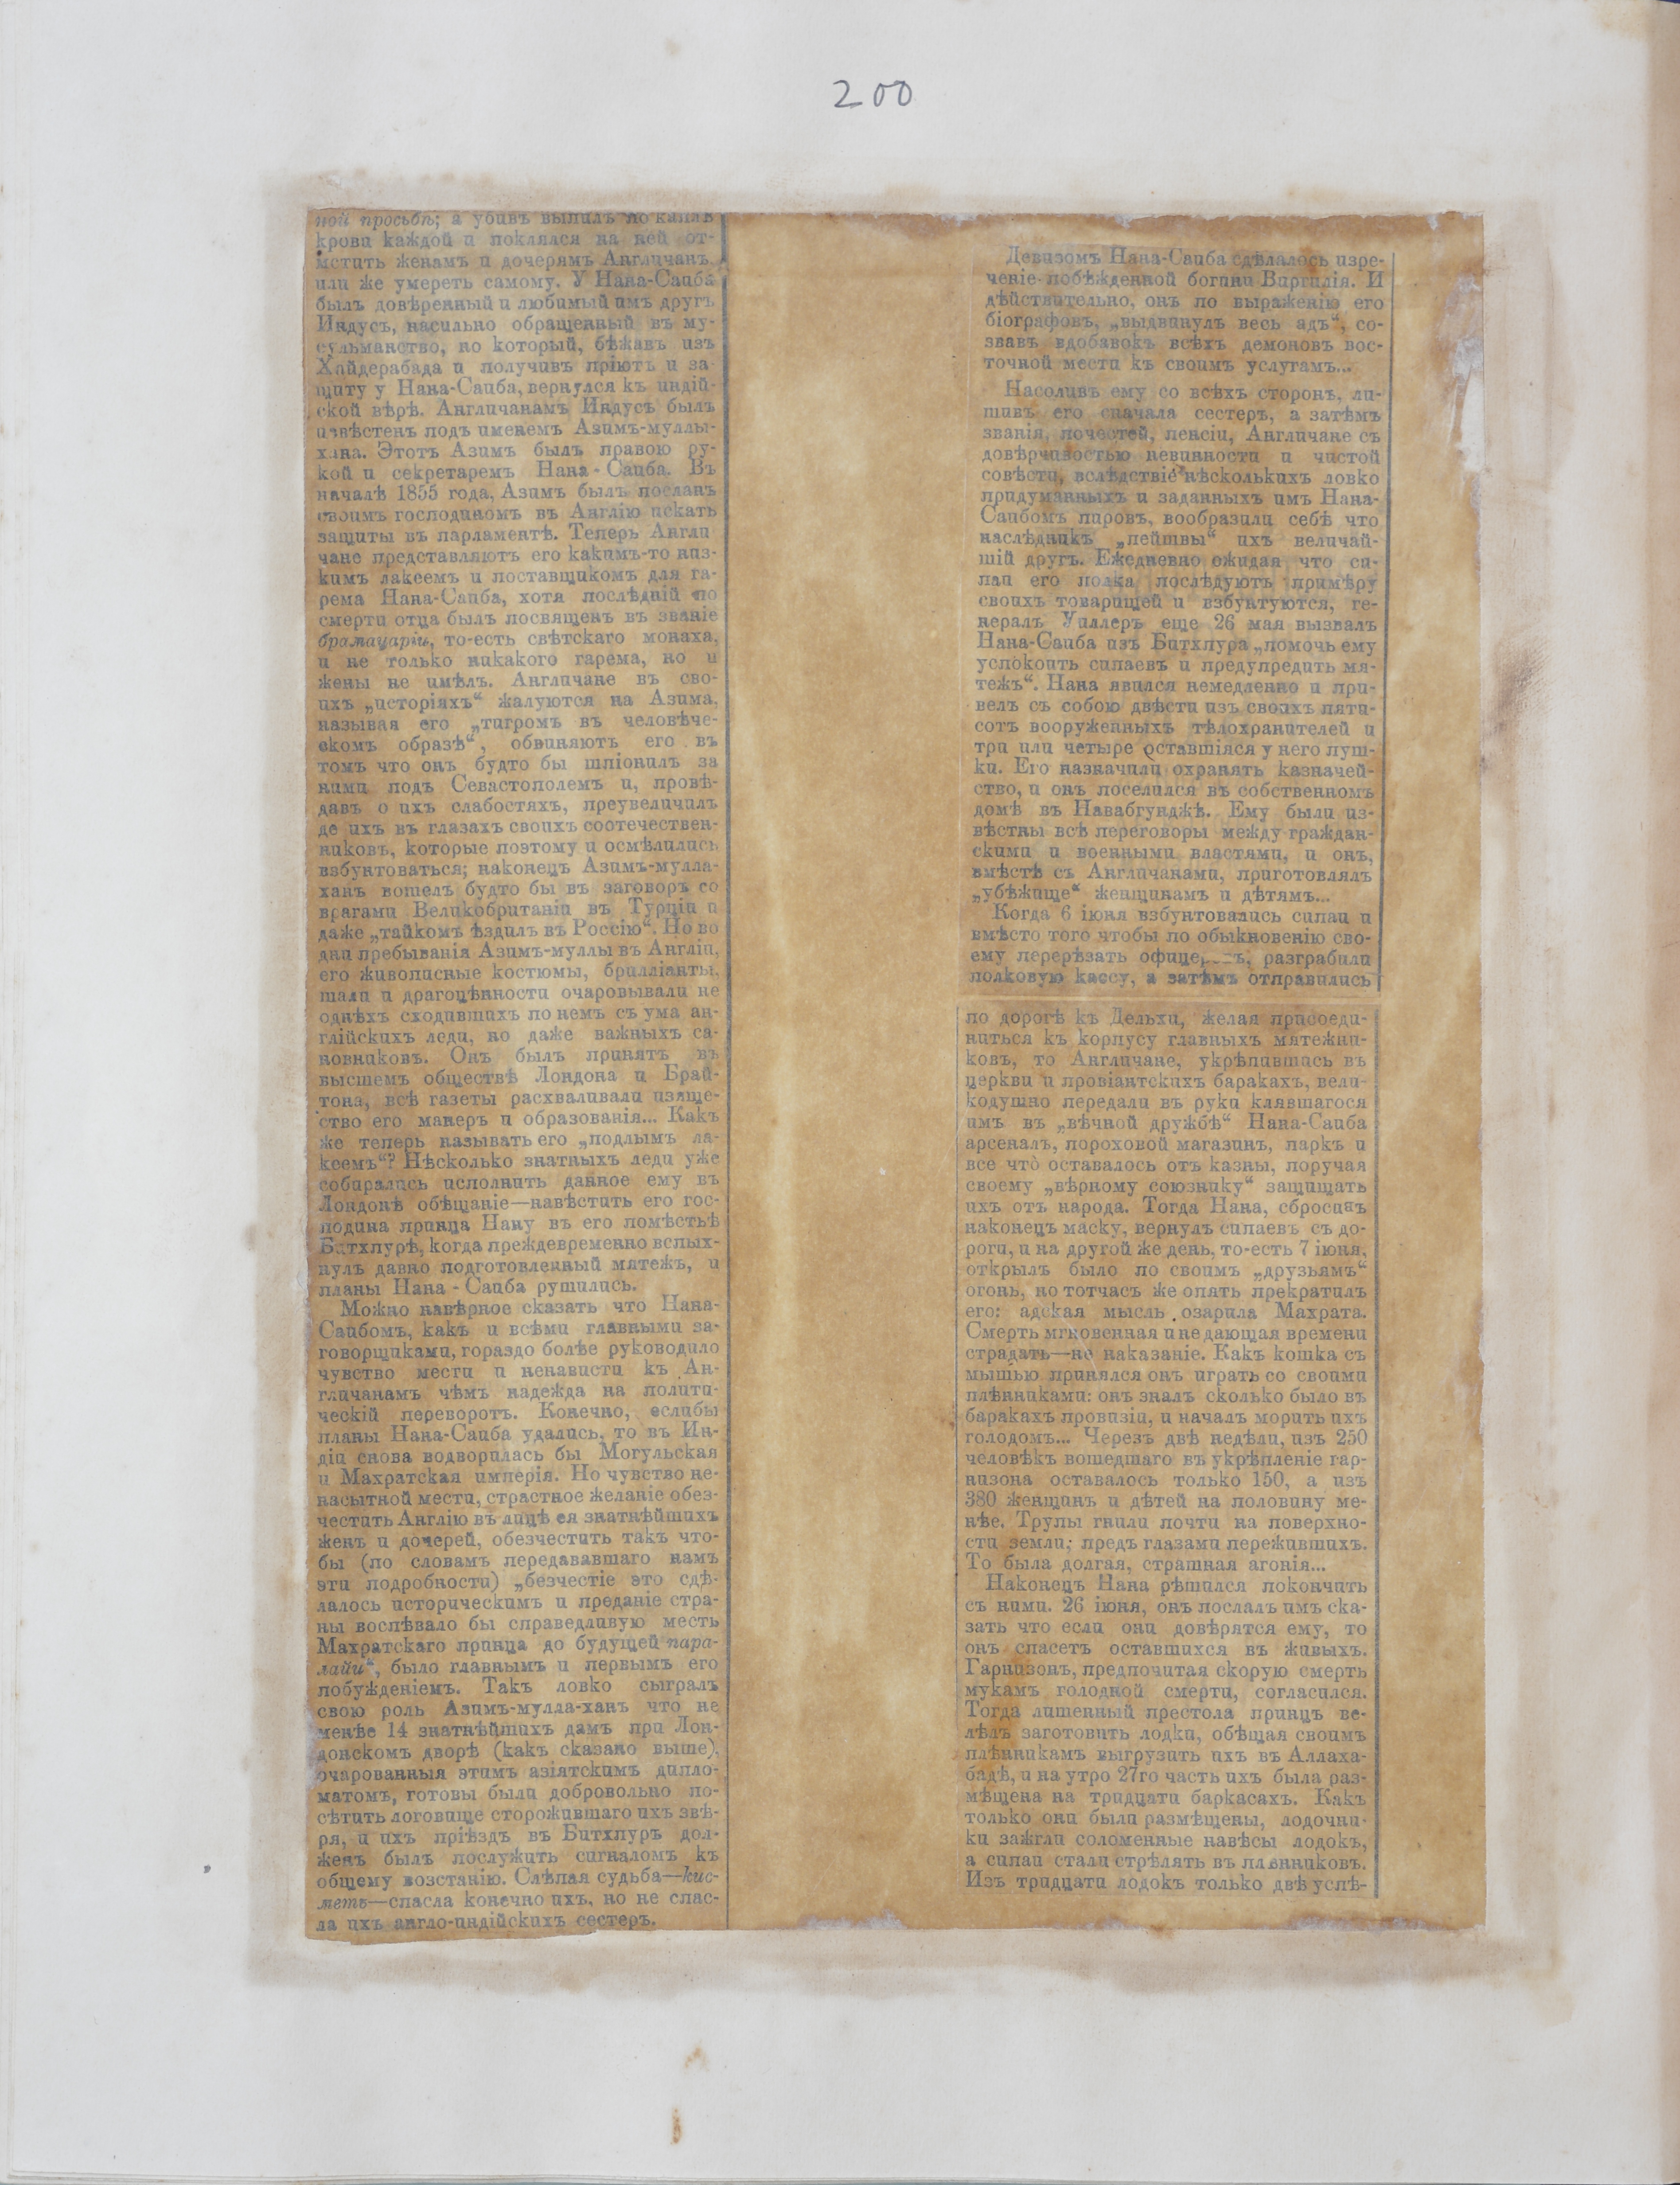 200
ной просьбѣ; а убивъ выпилъ по каплѣ
крови каждой и поклялся на ней от-
мстить женамъ и дочерямъ Англичанъ
или же умереть самому. У Нана-Саиба
былъ довѣренный и любимый имъ другъ
Индусъ, насильно обращенный въ му-
сульманство, но который, бѣжавъ изъ
Хайдерабада и получивъ пріютъ и за-
щиту у Нана-Саиба, вернулся къ индій-
ской вѣрѣ. Англичанамъ Индусъ былъ
извѣстенъ подъ именемъ Азимъ-муллы-
хана. Этотъ Азимъ былъ правою ру-
кой и секретаремъ Нана-Саиба. Въ
началѣ 1855 года, Азимъ былъ посланъ
своимъ господиномъ въ Англію искать
защиты въ парламентѣ. Теперь Англи
чане представляютъ его какимъ-то низ-
кимъ лакеемъ и поставщикомъ для га-
рема Нана-Саиба, хотя послѣдній по
смерти отца былъ посвященъ въ званіе
брамачаріи, то-есть свѣтскаго монаха,
и не только никакого гарема, но и
жены не имѣлъ. Англичане въ сво-
ихъ „исторіяхъ“ жалуются на Азима,
называя его „тигромъ въ человѣче-
скомъ образѣ“, обвиняютъ его въ
томъ что онъ будто бы шпіонилъ за
ними подъ Севастополемъ и, провѣ-
давъ о ихъ слабостяхъ, преувеличилъ
де ихъ въ глазахъ своихъ соотечествен-
никовъ, которые поэтому и осмѣлились
взбунтоваться; наконецъ Азимъ-мулла-
ханъ вошелъ будто бы въ заговоръ со
врагами Великобританіи въ Турціи и
даже „тайкомъ ѣздилъ въ Россію“. Но во
дни пребыванія Азимъ-муллы въ Англіи,
его живописные костюмы, брилліанты,
шали и драгоцѣнности очаровывали не
однѣхъ сходившихъ по немъ съ ума ан-
глійскихъ леди, но даже важныхъ са-
новниковъ. Онъ былъ принятъ въ
высшемъ обществѣ Лондона и Брай-
тона, всѣ газеты расхваливали изяще-
ство его манеръ и образованія... Какъ
же теперь называть его „подлымъ ла-
кеемъ“? Нѣсколько знатныхъ леди уже
собирались исполнить данное ему въ
Лондонѣ обѣщаніе—навѣстить его гос-
подина принца Нану въ его помѣстьѣ
Битхпурѣ, когда преждевременно вспых-
нулъ давно подготовленный мятежъ, и
планы Нана-Саиба рушились.
Можно навѣрное сказать что Нана-
Саибомъ, какъ и всѣми главными за-
говорщиками, гораздо болѣе руководило
чувство мести и ненависти къ Ан-
гличанамъ чѣмъ надежда на полити-
ческій переворотъ. Конечно, еслибы
планы Нана-Саиба удались, то въ Ин-
діи снова водворилась бы Могульская
и Махратская имперія. Но чувство не-
насытной мести, страстное желаніе обез-
честить Англію въ лицѣ ея знатнѣйшихъ
женъ и дочерей, обезчестить такъ что-
бы (по словамъ передававшаго намъ
эти подробности) „безчестіе это сдѣ-
лалось историческимъ и преданіе стра-
ны воспѣвало бы справедливую месть
Махратскаго принца до будущей пара-
лайи“, было главнымъ и первымъ его
побужденіемъ. Такъ ловко сыгралъ
свою роль Азимъ-мулла-ханъ что не
менѣе 14 знатнѣйшихъ дамъ при Лон-
донскомъ дворѣ (какъ сказано выше),
очарованныя этимъ азіятскимъ дипло-
матомъ, готовы были добровольно по-
сѣтить логовище сторожившаго ихъ звѣ-
ря, и ихъ пріѣздъ въ Битхпуръ дол-
женъ былъ послужить сигналомъ къ
общему возстанію. Слѣпая судьба—кис-
метъ—спасла конечно ихъ, но не спас-
ла ихъ англо-индійскихъ сестеръ.
Девизомъ Нана-Саиба сдѣлалось изре-
ченіе побѣжденной богини Виргилія. И
дѣйствительно, онъ по выраженію его
біографовъ, „выдвинулъ весь адъ“, со-
звавъ вдобавокъ всѣхъ демоновъ вос-
точной мести къ своимъ услугамъ...
Насоливъ ему со всѣхъ сторонъ, ли-
шивъ его сначала сестеръ, а затѣмъ
званія, почестей, пенсіи, Англичане съ
довѣрчивостью невинности и чистой
совѣсти, вслѣдствіе нѣсколькихъ ловко
придуманныхъ и заданныхъ имъ Нана-
Саибомъ пировъ, вообразили себѣ что
наслѣдникъ „пейшвы“ ихъ величай-
шій другъ. Ежедневно ожидая что си-
паи его полка послѣдуютъ примѣру
своихъ товарищей и взбунтуются, ге-
нералъ Уиллеръ еще 26 мая вызвалъ
Нана-Саиба изъ Битхпура „помочь ему
успокоить сипаевъ и предупредить мя-
тежъ“. Нана явился немедленно и при-
велъ съ собою двѣсти изъ своихъ пяти-
сотъ вооруженныхъ тѣлохранителей и
три или четыре оставшіяся у него пуш-
ки. Его назначили охранять казначей-
ство, и онъ поселился въ собственномъ
домѣ въ Навабгунджѣ. Ему были из-
вѣстны всѣ переговоры между граждан-
скими и военными властями, и онъ,
вмѣстѣ съ Англичанами, приготовлялъ
„убѣжище“ женщинамъ и дѣтямъ...
Когда 6 іюня взбунтовались сипаи и
вмѣсто того чтобы по обыкновенію сво-
ему перерѣзать офицеровъ, разграбили
полковую кассу, а затѣмъ отправились
по дорогѣ къ Дельхи, желая присоеди-
ниться къ корпусу главныхъ мятежни-
ковъ, то Англичане, укрѣпившись въ
церкви и провіантскихъ баракахъ, вели-
кодушно передали въ руки клявшагося
имъ въ „вѣчной дружбѣ“ Нана-Саиба
арсеналъ, пороховой магазинъ, паркъ и
все что̀ оставалось отъ казны, поручая
своему „вѣрному союзнику“ защищать
ихъ отъ народа. Тогда Нана, сбросивъ
наконецъ маску, вернулъ сипаевъ съ до-
роги, и на другой же день, то-есть 7 іюня,
открылъ было по своимъ „друзьямъ“
огонь, но тотчасъ же опять прекратилъ
его: адская мысль озарила Махрата.
Смерть мгновенная и не дающая времени
страдать—не наказаніе. Какъ кошка съ
мышью принялся онъ играть со своими
плѣнниками: онъ зналъ сколько было въ
баракахъ провизіи, и началъ морить ихъ
голодомъ... Черезъ двѣ недѣли, изъ 250
человѣкъ вошедшаго въ укрѣпленіе гар-
низона оставалось только 150, а изъ
380 женщинъ и дѣтей на половину ме-
нѣе. Трупы гнили почти на поверхно-
сти земли, предъ глазами пережившихъ.
То была долгая, страшная агонія...
Наконецъ Нана рѣшился покончить
съ ними. 26 іюня, онъ послалъ имъ ска-
зать что если они довѣрятся ему, то
онъ спасетъ оставшихся въ живыхъ.
Гарнизонъ, предпочитая скорую смерть
мукамъ голодной смерти, согласился.
Тогда лишенный престола принцъ ве-
лѣлъ заготовить лодки, обѣщая своимъ
плѣнникамъ выгрузить ихъ въ Аллаха-
бадѣ, и на утро 27го часть ихъ была раз-
мѣщена на тридцати баркасахъ. Какъ
только они были размѣщены, лодочни-
ки зажгли соломенные навѣсы лодокъ,
а сипаи стали стрѣлять въ плѣнниковъ.
Изъ тридцати лодокъ только двѣ успѣ-